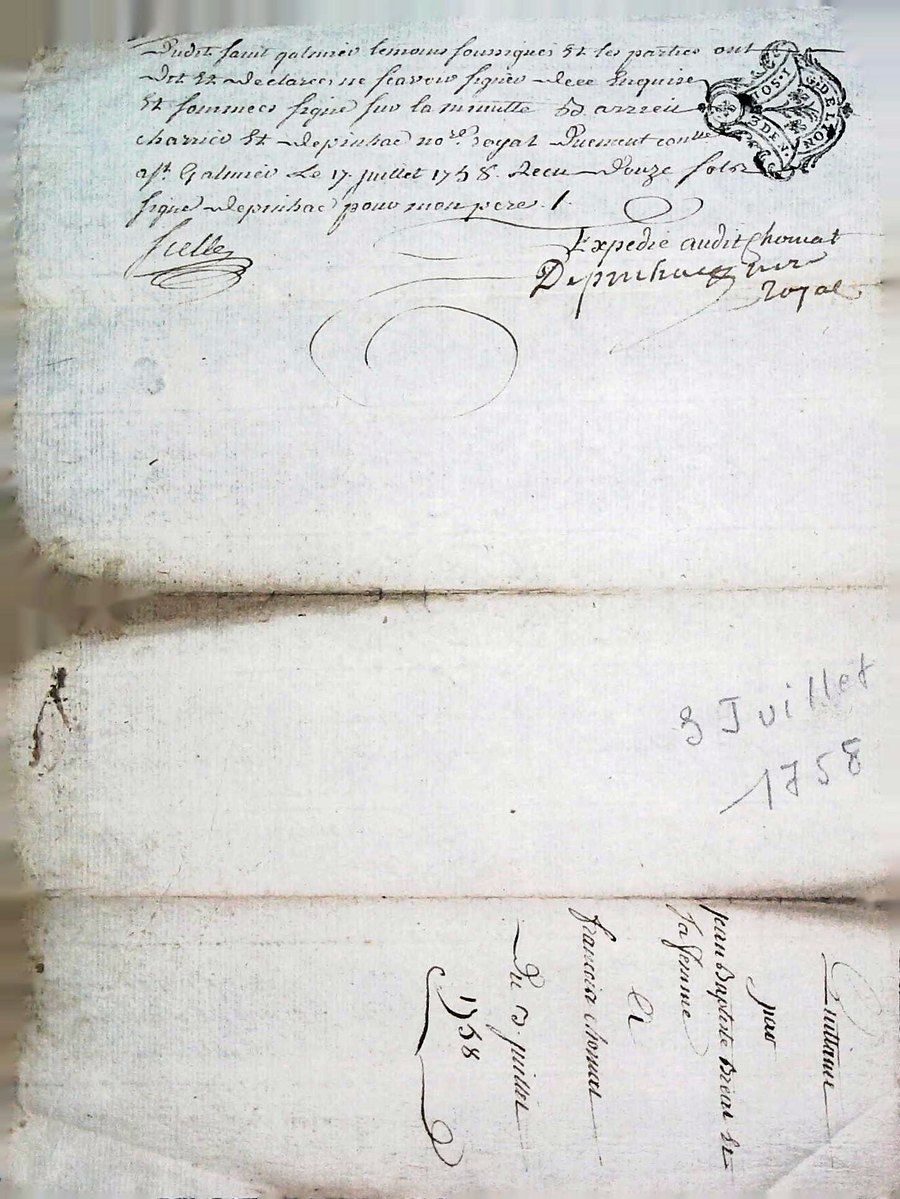 Dudit saint galmier temoins soussignes Et les parties ont
dit Et declarer ne scavoir signer dece Enquise
Et sommees signé sur la minutte D arzieu
charrier Et depinhac no.re royal Duement conttr
a st. Galmier Le 17 juillet 1758. Recu Douze sols
signé depinhac pour mon pere ./.
Expedie audit Chomat
Depinhac
royal
1 SOL
3 DEN
G. DE LYON
3 Juillet
1758
Quittance
par
jean Baptiste Breat Et
sa femme
A
francois chomat
Du 3 juillet
1758